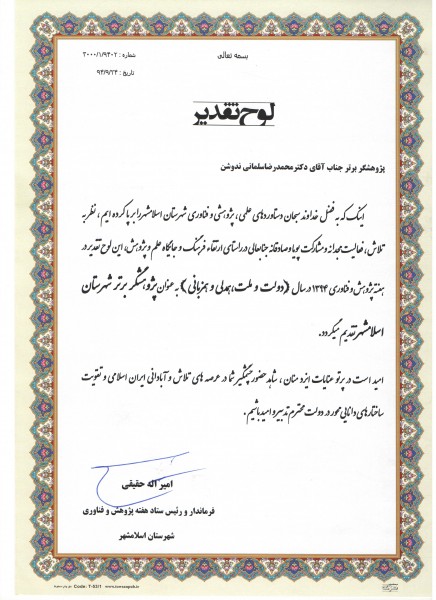 بسمه تعالی
شماره : ۲۰۰۰/۱/۹۴۰۲
تاریخ : ۹۴/۹/۲۴
لوح تقدیر
پژوهشگر برتر جناب آقای دکترمحمدرضاسلمانی ندوشن
اینک که به فضل خداوند سبحان دستاوردهای علمی، پژوهشی و فناوری شهرستان اسلامشهر را برپا کرده ایم، نظر به
تلاش، فعالیت مجدانه و مشارکت پویا و صادقانه جنابعالی در راستای ارتقاء فرهنگ و جایگاه علم و پژوهش، این لوح تقدیر در
هفته پژوهش و فناوری ۱۳۹۴ در سال (دولت و ملت، همدلی و همزبانی) به عنوان پژوهشگر برتر شهرستان
اسلامشهر تقدیم میگردد.
امید است در پرتو عنایات ایزد منان، شاهد حضور چشمگیر شما در عرصه های تلاش و آبادانی ایران اسلامی و تقویت
ساختارهای دانایی محور در دولت محترم تدبیر و امید باشیم.
امیر اله حقیقی
فرماندار و رئیس ستاد هفته پژوهش و فناوری
شهرستان اسلامشهر
Code: T-53/1